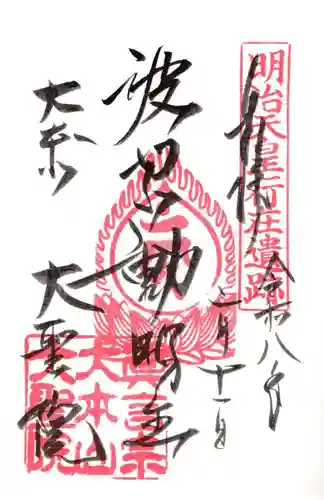 明治天皇御在遺跡
奉拝
令和八年
七月十一日
波切不動明王
大本山
大聖院
真言宗
大本山
大聖院